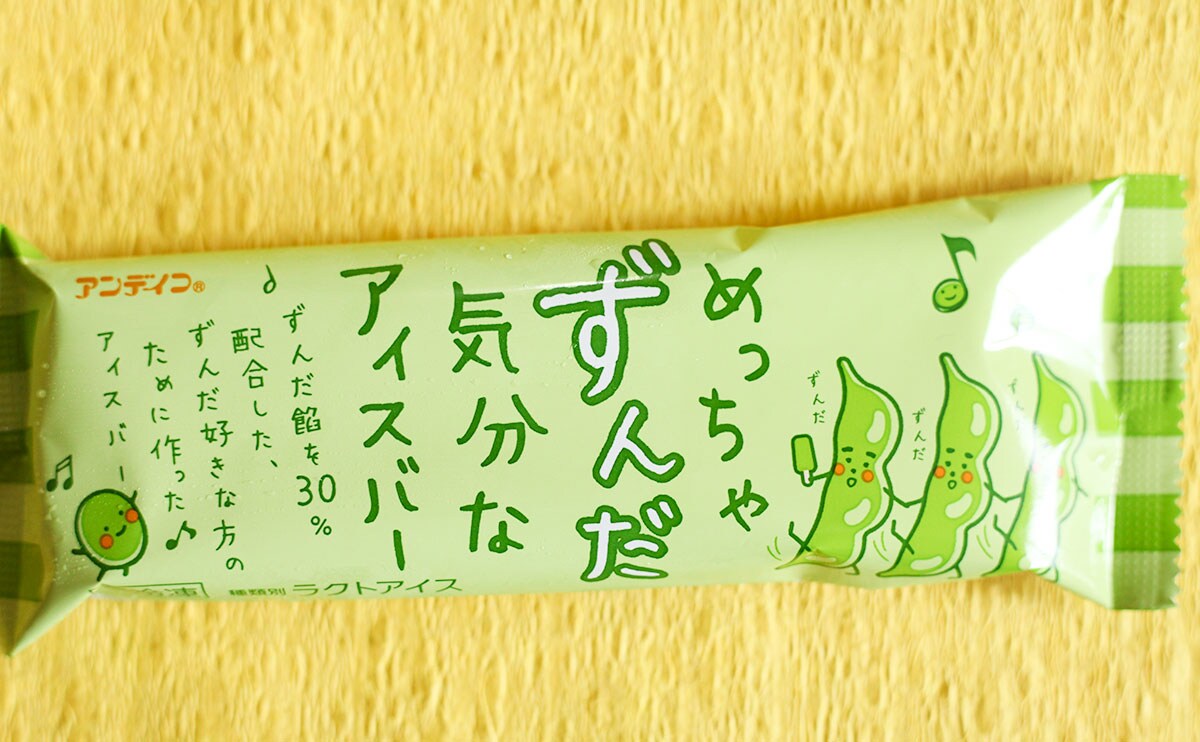 めっちゃ
ずんだ
気分な
アイスバー
ずんだ餡を30%
配合した、
ずんだ好きな方の
ために作った
アイスバー
アンデイコ®
ずんだ
ずんだ
種類別 ラクトアイス